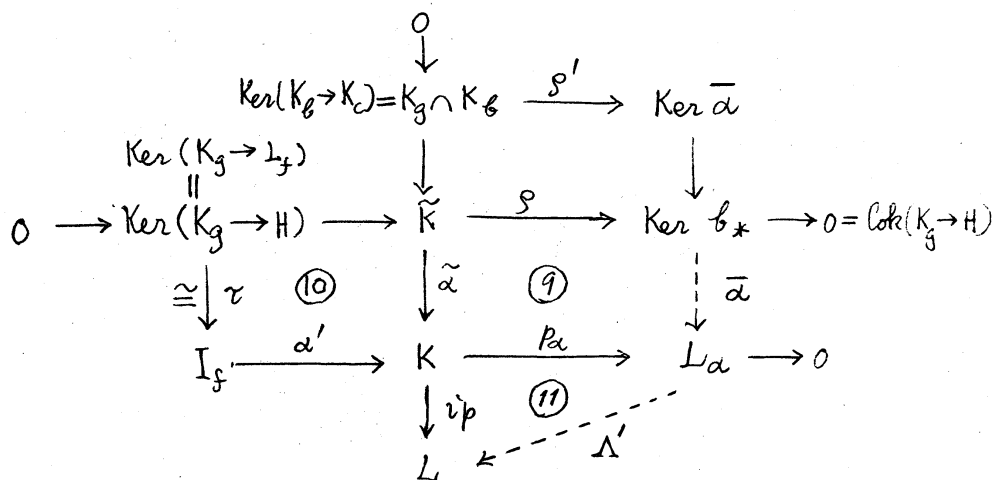 0
Ker(K_b → K_c) = K_g ∩ K_b → ρ' Ker ᾱ
Ker (K_g → L_f)
||
0 → Ker (K_g → H) → K̃ → ρ Ker b_* → 0 = Cok(K_g → H)
≅ τ ⑩ α̃ ⑨ ᾱ
I_f α' → K p_α → L_α → 0
ip ⑪
Λ'
L